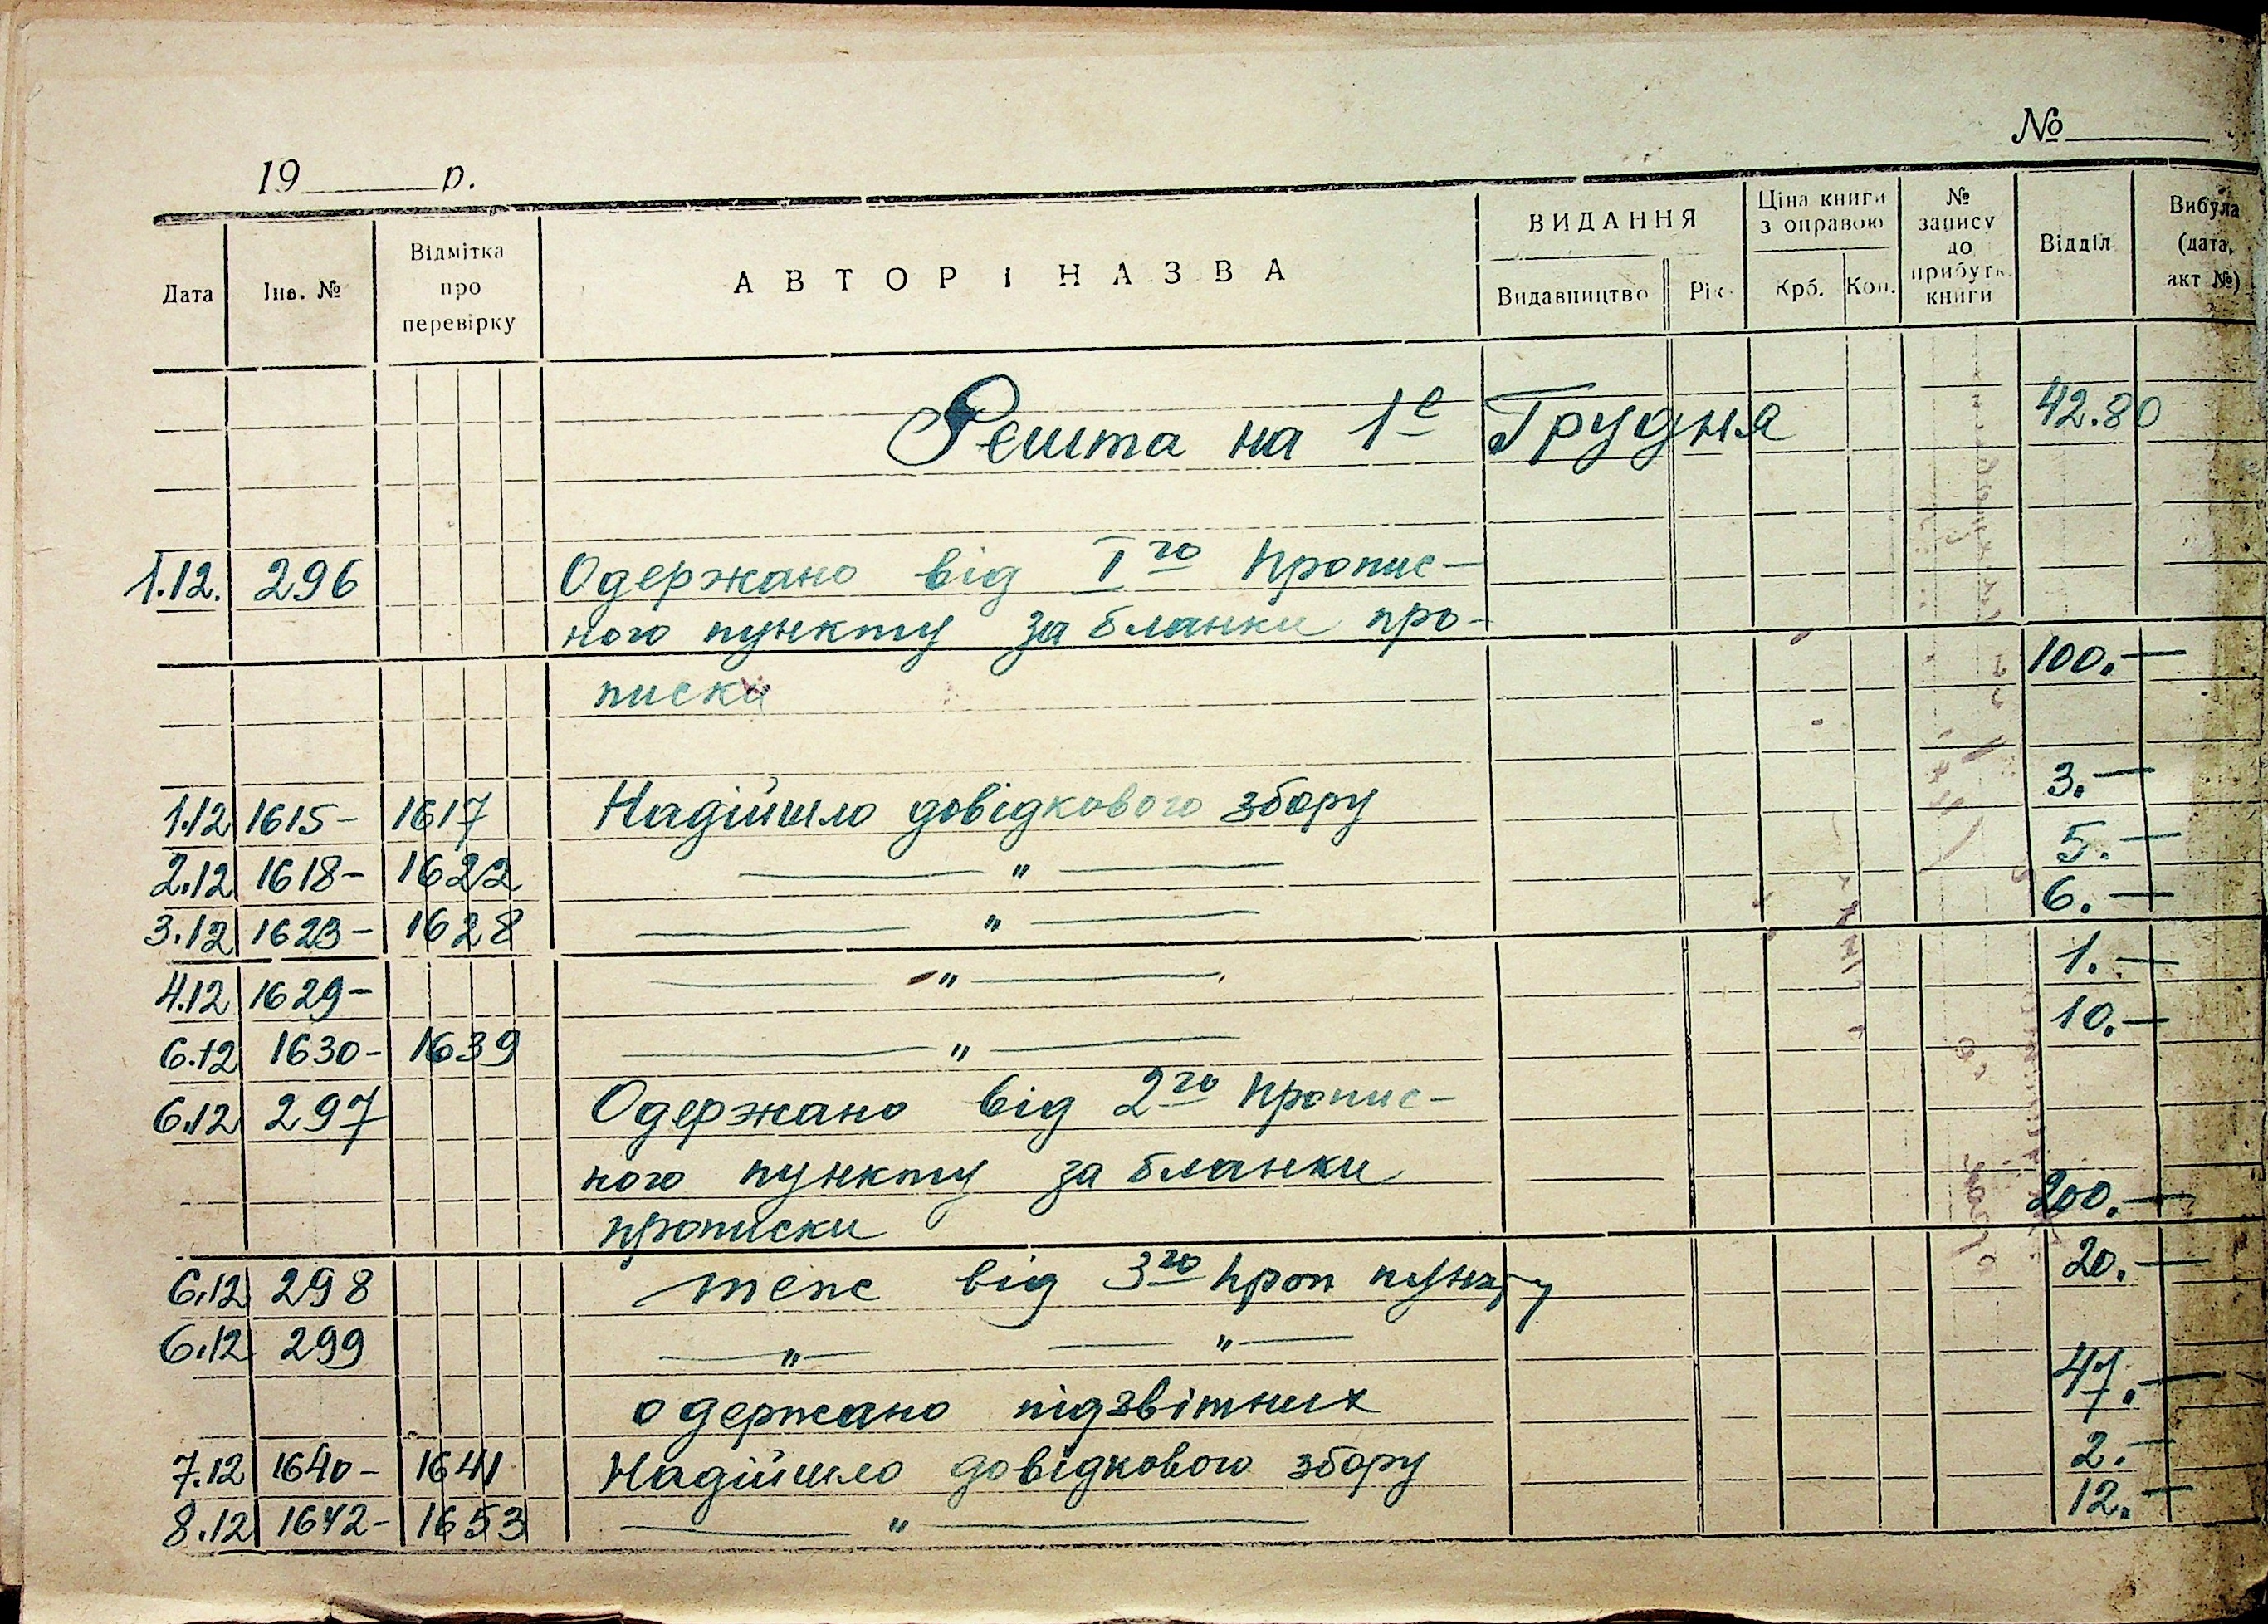 №
19 р.
Дата Інв. № Відмітка про перевірку АВТОР І НАЗВА ВИДАННЯ Видавництво Рік Ціна книги з оправою Крб. Коп. № запису до прибутк. книги Відділ Вибула (дата, акт №)
Решта на 1е Грудня 42.80
1.12. 296 Одержано від Iго Пропис-
ного пункту за бланки про-
писки 100.—
1.12 1615- 1617 Надійшло довідкового збору 3.—
2.12 1618- 1622 — " — 5.—
3.12 1623- 1628 — " — 6.—
4.12 1629- — " — 1.—
6.12 1630- 1639 — " — 10.—
6.12 297 Одержано від 2го Пропис-
ного пункту за бланки
прописки 200.—
6.12 298 теж від 3го Проп пункту 20.—
6.12 299 — " — — " —
одержано підзвітних 47.—
7.12 1640- 1641 Надійшло довідкового збору 2.—
8.12 1642- 1653 — " — 12.—